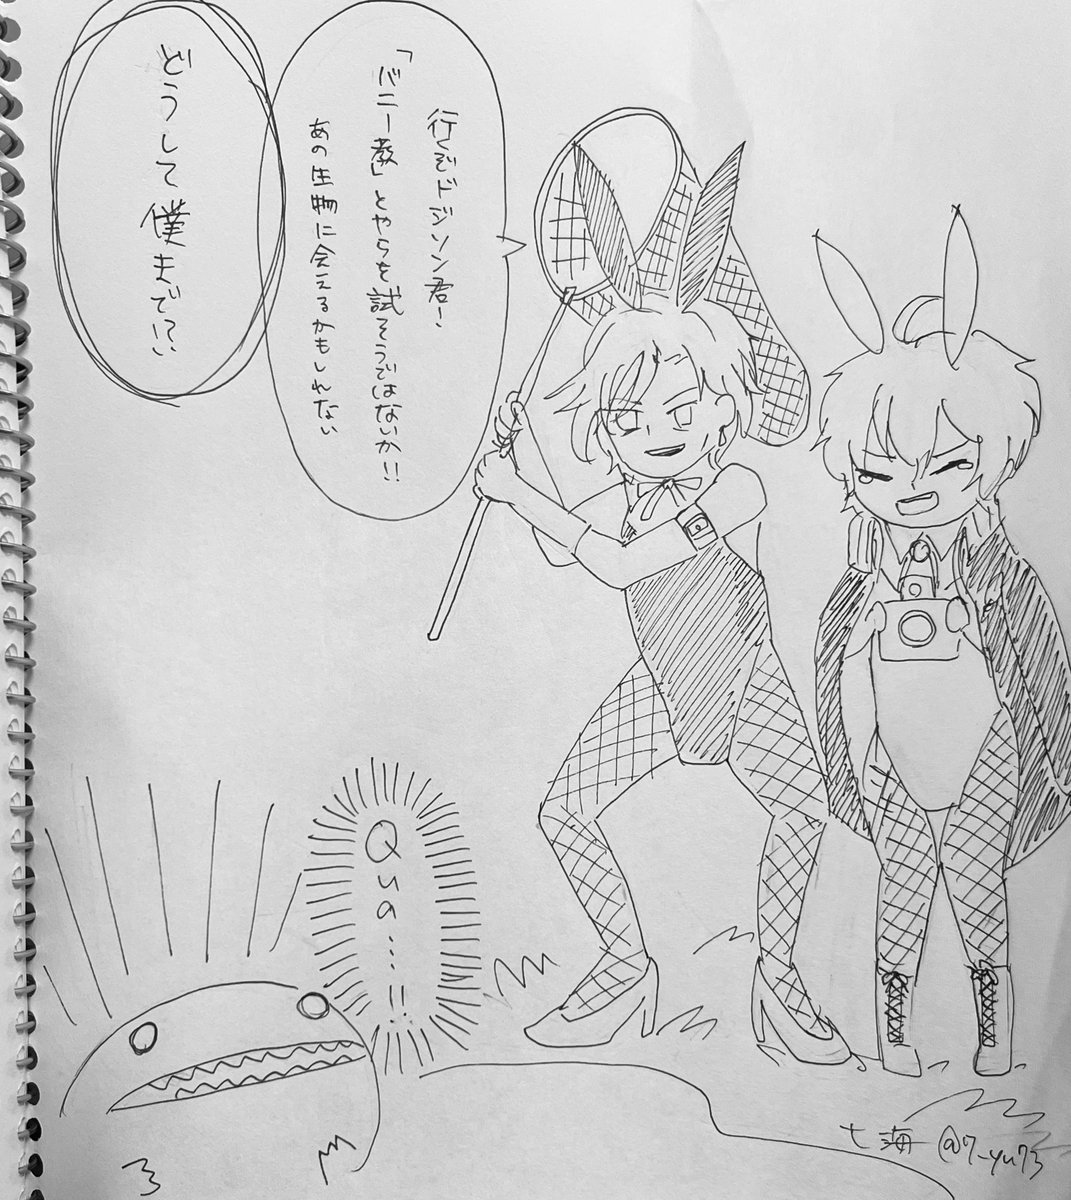 行くぞドジソン君!
「バニー教」とやらを試そうではないか!!
あの生物に会えるかもしれない
どうして僕まで!?
Qua...!!
七海 @7_yu73